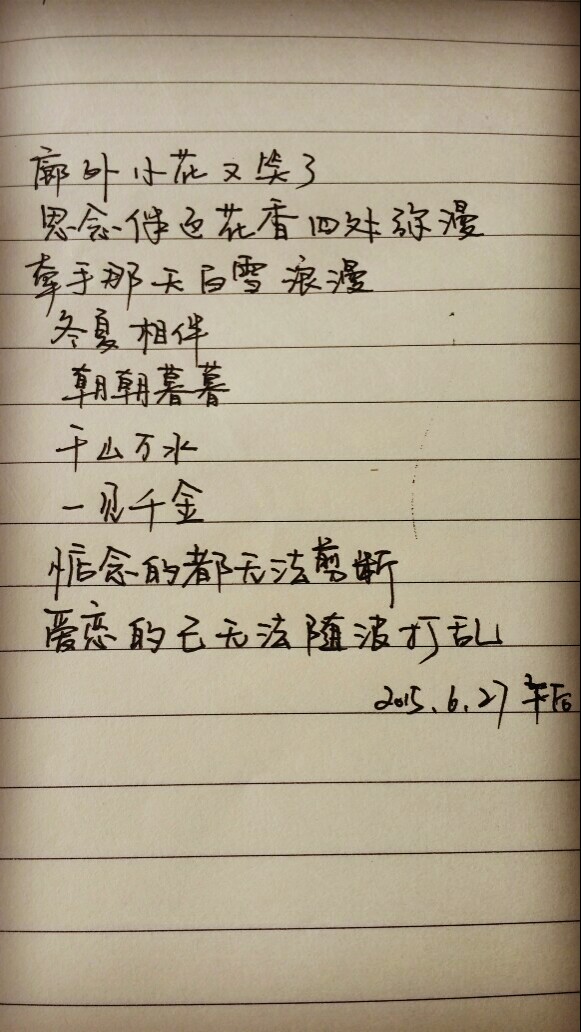 廊外小花又笑了
思念伴迎花香四处弥漫
牵手那天白雪浪漫
冬夏相伴
朝朝暮暮
千山万水
一见千金
惦念的都无法剪断
爱恋的已无法随波打乱
2015.6.27 午后